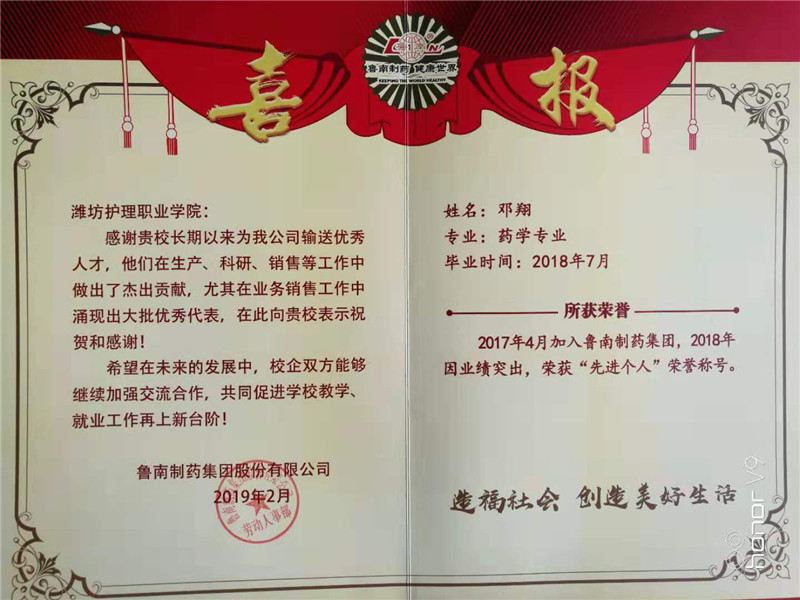 喜报
鲁南制药 健康世界
KEEPING THE WORLD HEALTHY
潍坊护理职业学院：
感谢贵校长期以来为我公司输送优秀
人才，他们在生产、科研、销售等工作中
做出了杰出贡献，尤其在业务销售工作中
涌现出大批优秀代表，在此向贵校表示祝
贺和感谢！
希望在未来的发展中，校企双方能够
继续加强交流合作，共同促进学校教学、
就业工作再上新台阶！
鲁南制药集团股份有限公司
2019年2月
姓名：邓翔
专业：药学专业
毕业时间：2018年7月
所获荣誉
2017年4月加入鲁南制药集团，2018年
因业绩突出，荣获“先进个人”荣誉称号。
造福社会 创造美好生活
honor V9